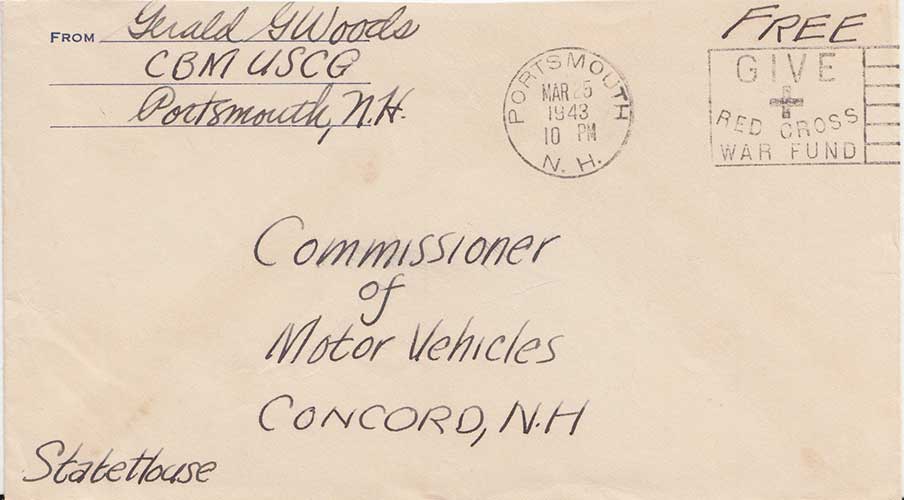 FROM Gerald G Woods
CBM USCG
Portsmouth, N.H.
PORTSMOUTH
MAR 25
1943
10 PM
N. H.
FREE
GIVE
RED CROSS
WAR FUND
Commissioner
of
Motor Vehicles
CONCORD, N.H
StateHouse